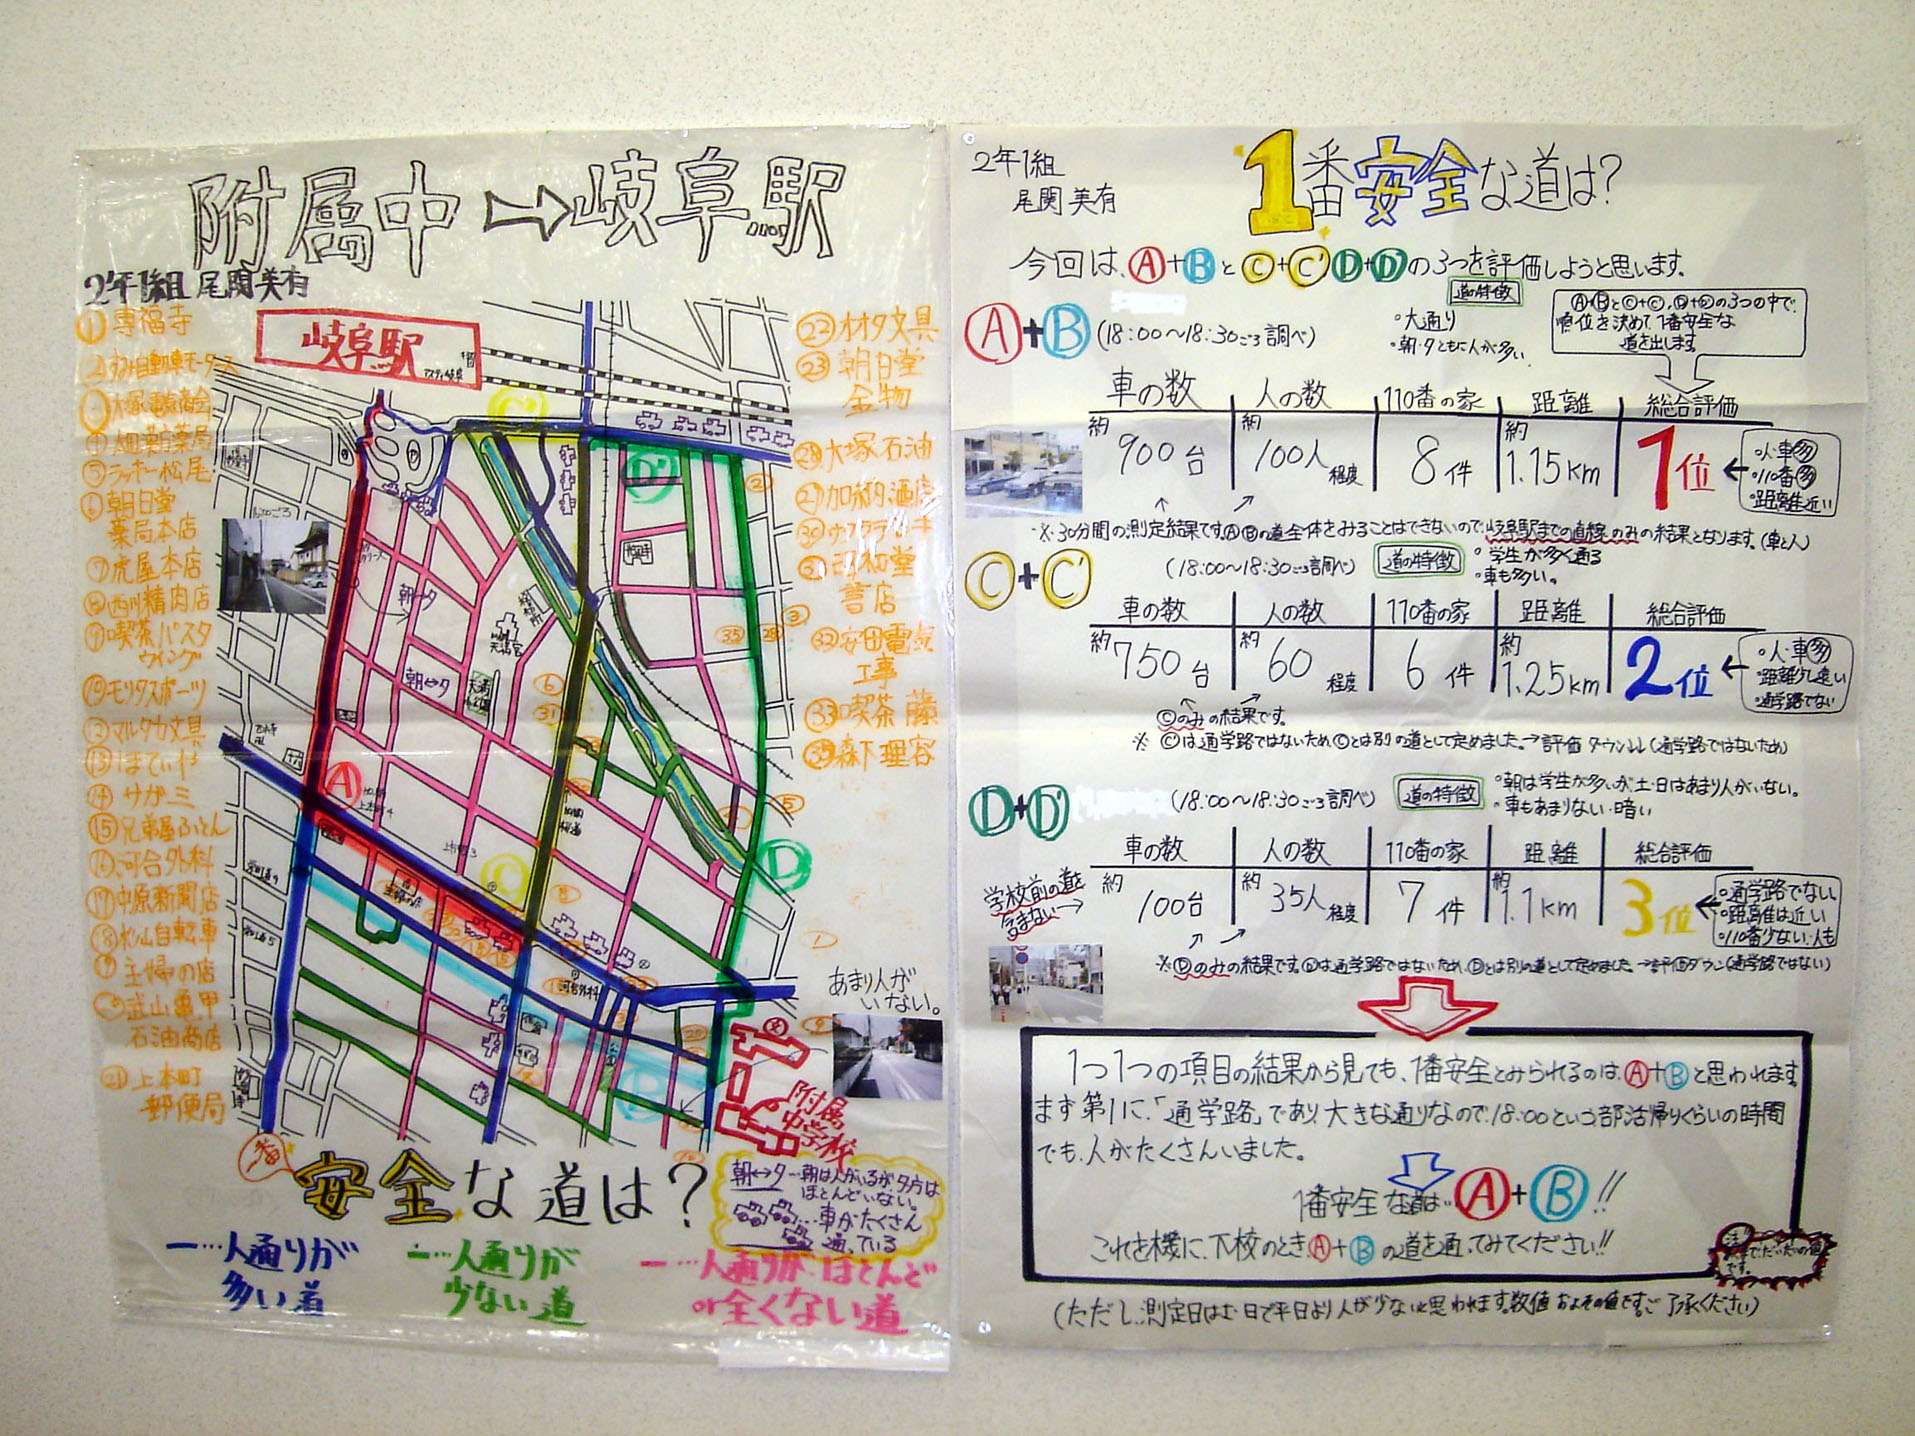 附属中→岐阜駅
2年1組 尾関美有
岐阜駅
アスティ岐阜
① 専福寺
③大塚電気商会
⑤ラッキー松尾
⑥朝日堂
薬局本店
⑦虎屋本店
⑧西川精肉店
⑨喫茶パスタ
ウイング
⑩モリタスポーツ
⑫マルタカ文具
⑭サガミ
⑮兄弟屋ふとん
⑯河合外科
⑰中原新聞店
⑱松山自転車
主婦の店
武山亀甲
石油商店
㉑上本町
郵便局
㉒オオタ文具
㉓朝日堂
金物
㉘大塚石油
㉙加納酒店
㉛昭和堂
書店
㉜安田電気
工事
㉝喫茶 藤
森下理容
C'
D'
朝↔夕
朝↔夕
天満宮
A
C
D
B
主婦の店
河合外科
あまり人が
いない。
附属
中学校
一番
安全な道は？
朝↔夕…朝は人がいるが夕方は
ほとんどいない。
…車がたくさん
通っている
ー…人通りが
多い道
ー…人通りが
少ない道
ー…人通りが、ほとんど
or全くない道
2年1組
尾関美有
1番安全な道は？
今回は、Ⓐ+ⒷとⒸ+Ⓒ'Ⓓ+Ⓓ'の3つを評価しようと思います。
Ⓐ+Ⓑ (18:00〜18:30ごろ調べ)
道の特徴
◦大通り
◦朝・夕ともに人が多い
Ⓐ+ⒷとⒸ+Ⓒ',Ⓓ+Ⓓ'の3つの中で、
順位を決めて、1番安全な
道を出します。
車の数 人の数 110番の家 距離 総合評価
約900台 約100人程度 8件 約1.15km 1位
◦人・車多
◦110番多
◦距離近い
※30分間の測定結果です。ⒶⒷの道全体をみることはできないので、岐阜駅までの直線のみの結果となります。(車と人)
Ⓒ+Ⓒ' (18:00〜18:30ごろ調べ)
道の特徴
◦学生が多く通る
◦車も多い。
車の数 人の数 110番の家 距離 総合評価
約750台 約60程度 6件 約1.25km 2位
◦人・車多
◦距離少し遠い
◦通学路でない
Ⓒのみの結果です。
※Ⓒは通学路ではないためⒸとは別の道として定めました。→評価ダウン↓↓(通学路ではないため)
Ⓓ+Ⓓ' (18:00〜18:30ごろ調べ)
道の特徴
◦朝は学生が多いが、土・日はあまり人がいない。
◦車もあまりない・暗い
学校前の道を
含まない→
車の数 人の数 110番の家 距離 総合評価
約100台 約35人程度 7件 約1.1km 3位
◦通学路でない
◦距離は近い
◦110番少ない・人も
※Ⓓのみの結果です。Ⓓは通学路ではないため、Ⓓとは別の道として定めました。→評価ダウン(通学路ではない)
1つ1つの項目の結果から見ても、1番安全とみられるのは、Ⓐ+Ⓑと思われます。
まず第1に、「通学路」であり大きな通りなので、18:00という部活帰りくらいの時間
でも、人がたくさんいました。
1番安全な道は…Ⓐ+Ⓑ!!
これを機に、下校のとき、Ⓐ+Ⓑの道を通ってみてください!!
(ただし、測定日は土・日で平日より人が少ないと思われます。数値およその値です。ご了承ください)